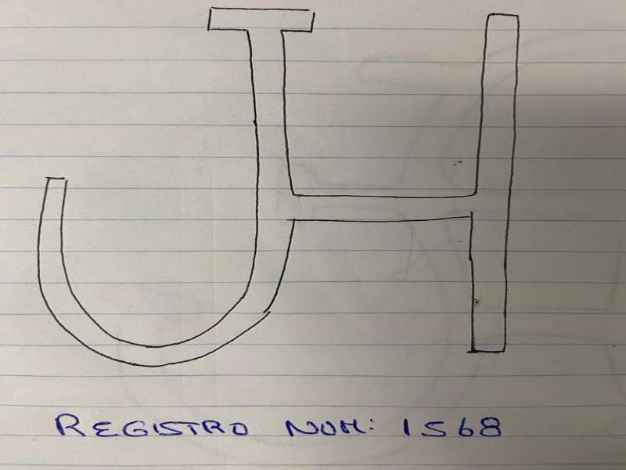 JH
REGISTRO NUM: 1568